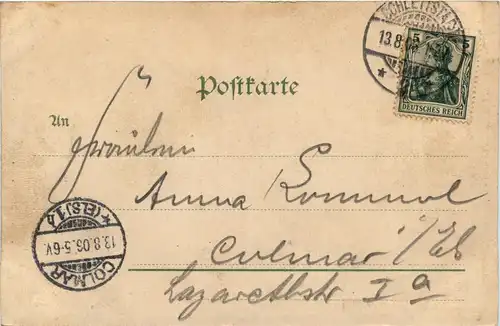 SCHLETTSTADT
13.8.06
5 5
DEUTSCHES REICH
Postkarte
An
Fräulein
Anna Rommel
Colmar i/Els
Lazarettstr I a
COLMAR
13.8.06.5-6V.
* (ELS) 1 b